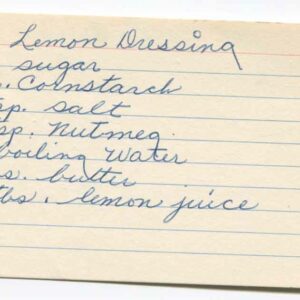 Lemon Dressing
sugar
. Cornstarch
sp. salt
sp. Nutmeg
boiling Water
s. butter
tbs. lemon juice